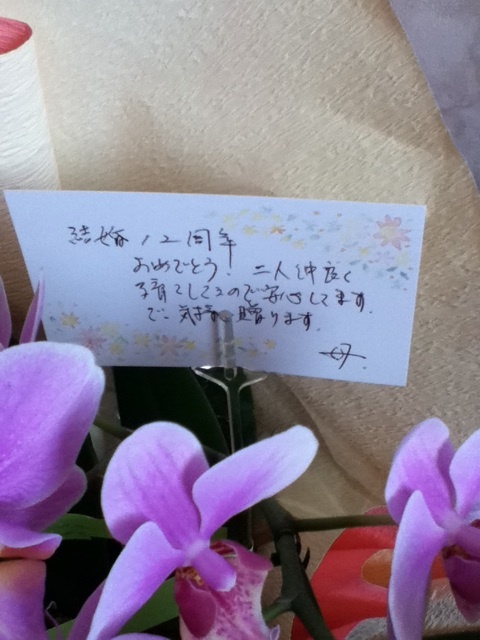 結婚12周年
おめでとう! 二人仲良く
子育てしてるので安心してます.
で 気持 贈ります.
母.